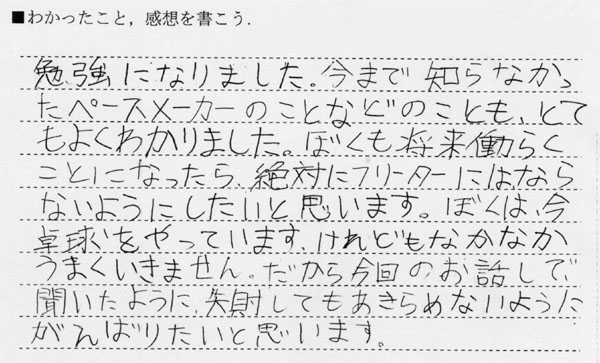 ■わかったこと，感想を書こう．
勉強になりました。今まで知らなかっ
たペースメーカーのことなどのことも、とて
もよくわかりました。ぼくも将来働らく
ことになったら、絶対にフリーターにはなら
ないようにしたいと思います。ぼくは、今
卓球をやっています、けれどもなかなか
うまくいきません。だから今回のお話しで、
聞いたように、失敗してもあきらめないように
がんばりたいと思います。